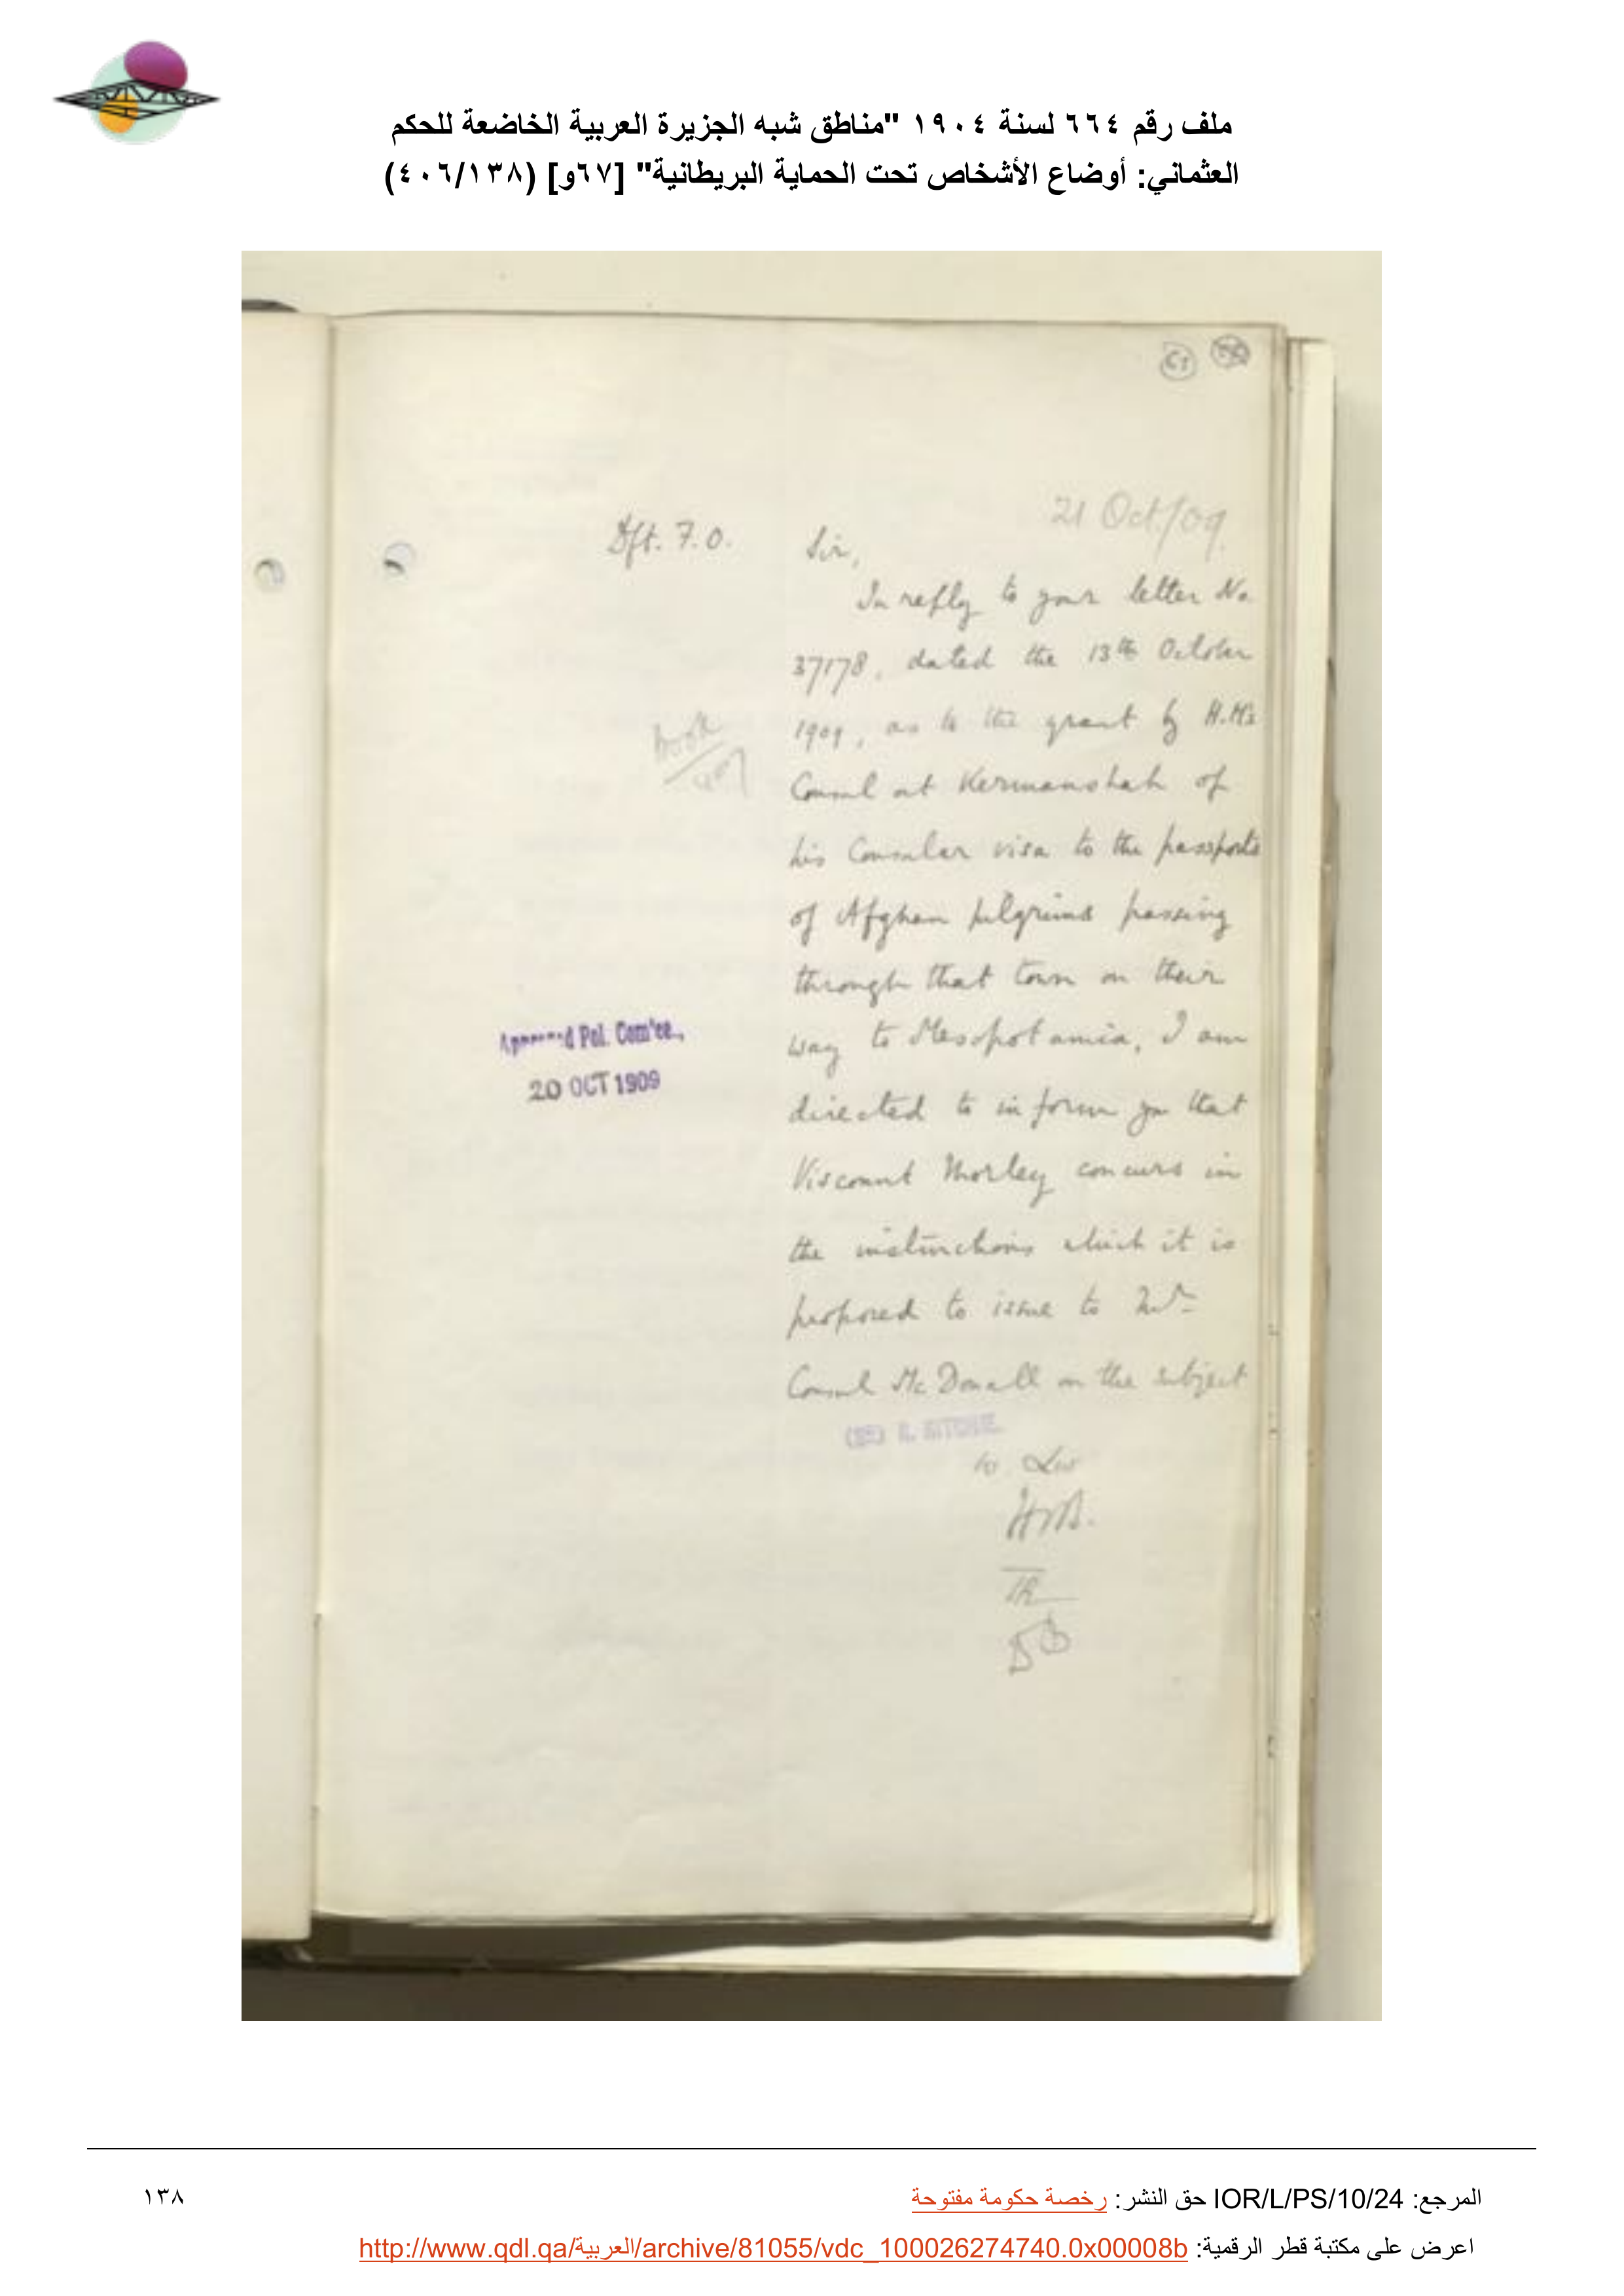 ملف رقم ٦٦٤ لسنة ١٩٠٤ "مناطق شبه الجزيرة العربية الخاضعة للحكم
العثماني: أوضاع الأشخاص تحت الحماية البريطانية" [٦٧و] (٤٠٦/١٣٨)
21 Oct./09.
Dft. F.O.
Sir,
In reply to your letter No.
37178, dated the 13th October
1909, as to the grant by H.M's
Consul at Kermanshah of
his Consular visa to the passports
of Afghan pilgrims passing
through that town on their
way to Mesopotamia, I am
directed to inform you that
Viscount Morley concurs in
the instructions which it is
proposed to issue to Mr.
Consul McDouall on the subject
Approved Pol. Com'ee.,
20 OCT 1909
(SD) R. RITCHIE.
المرجع: IOR/L/PS/10/24 حق النشر: رخصة حكومة مفتوحة
١٣٨
اعرض على مكتبة قطر الرقمية: http://www.qdl.qa/العربية/archive/81055/vdc_100026274740.0x00008b